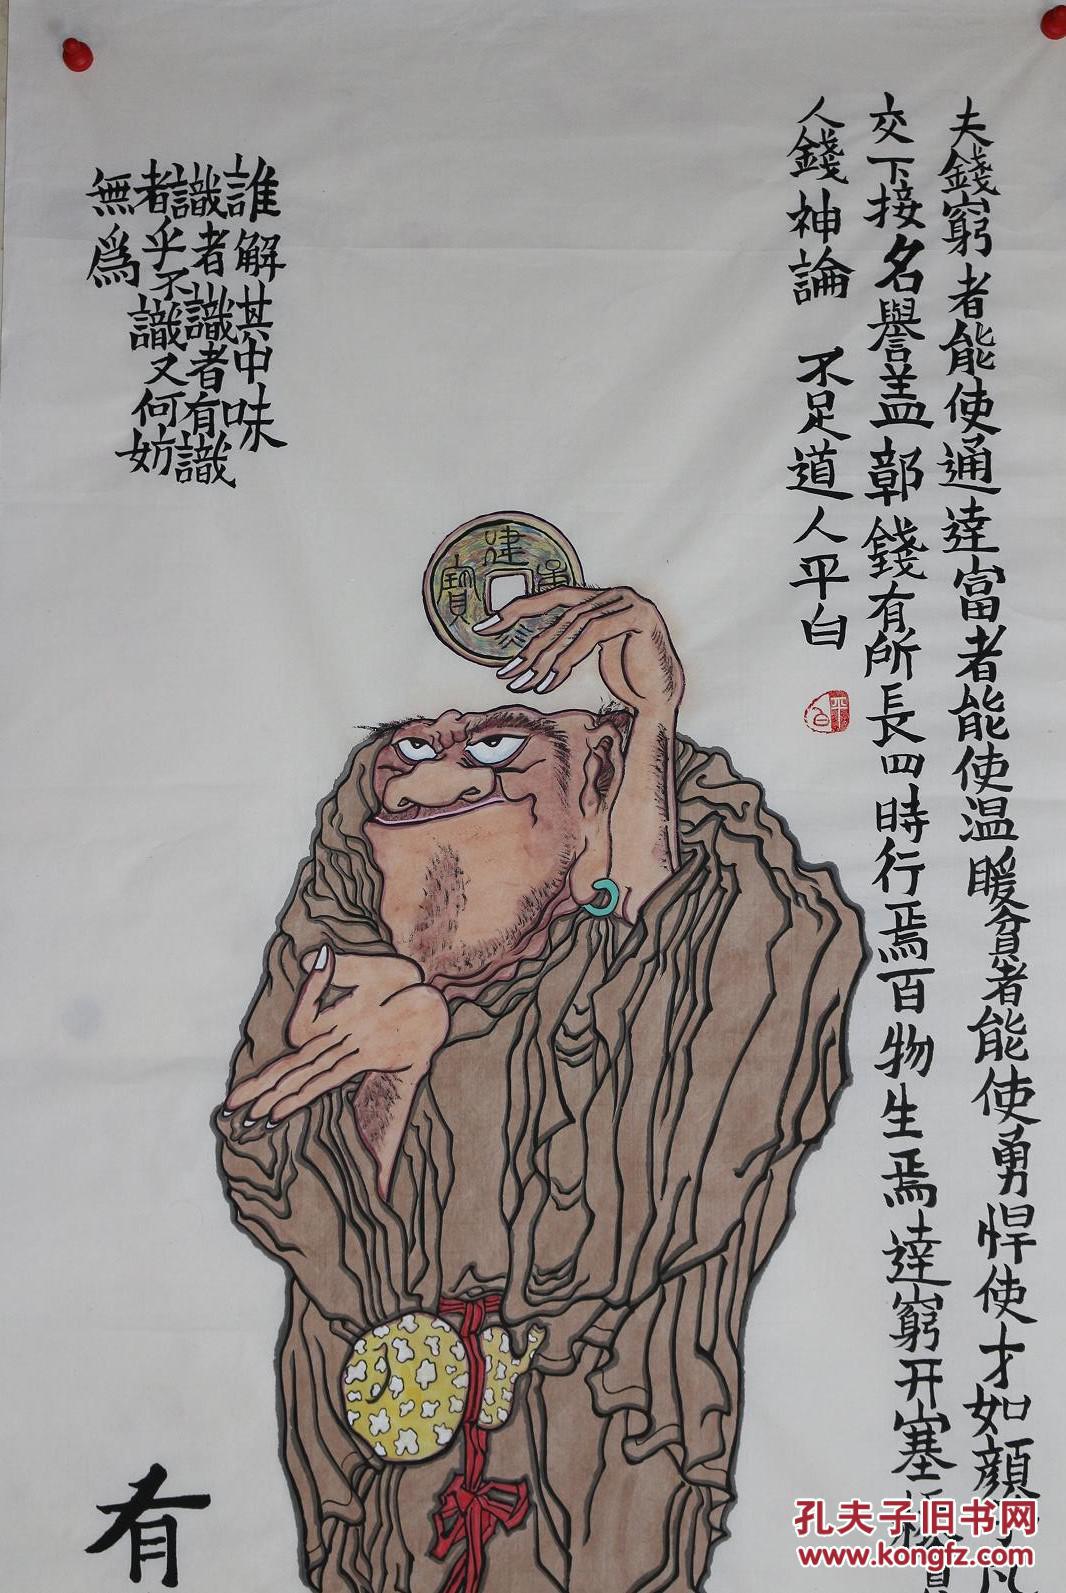 夫錢窮者能使通達富者能使温暖貧者能使勇悍使才如顏
交下接名譽盖彰錢有所長四時行焉百物生焉達窮开塞振貧
人錢神論　不足道人平白
平白
誰解其中味
識者識者有識
者乎不識又何妨
無爲
建
寶
有
孔夫子旧书网
www.kongfz.com